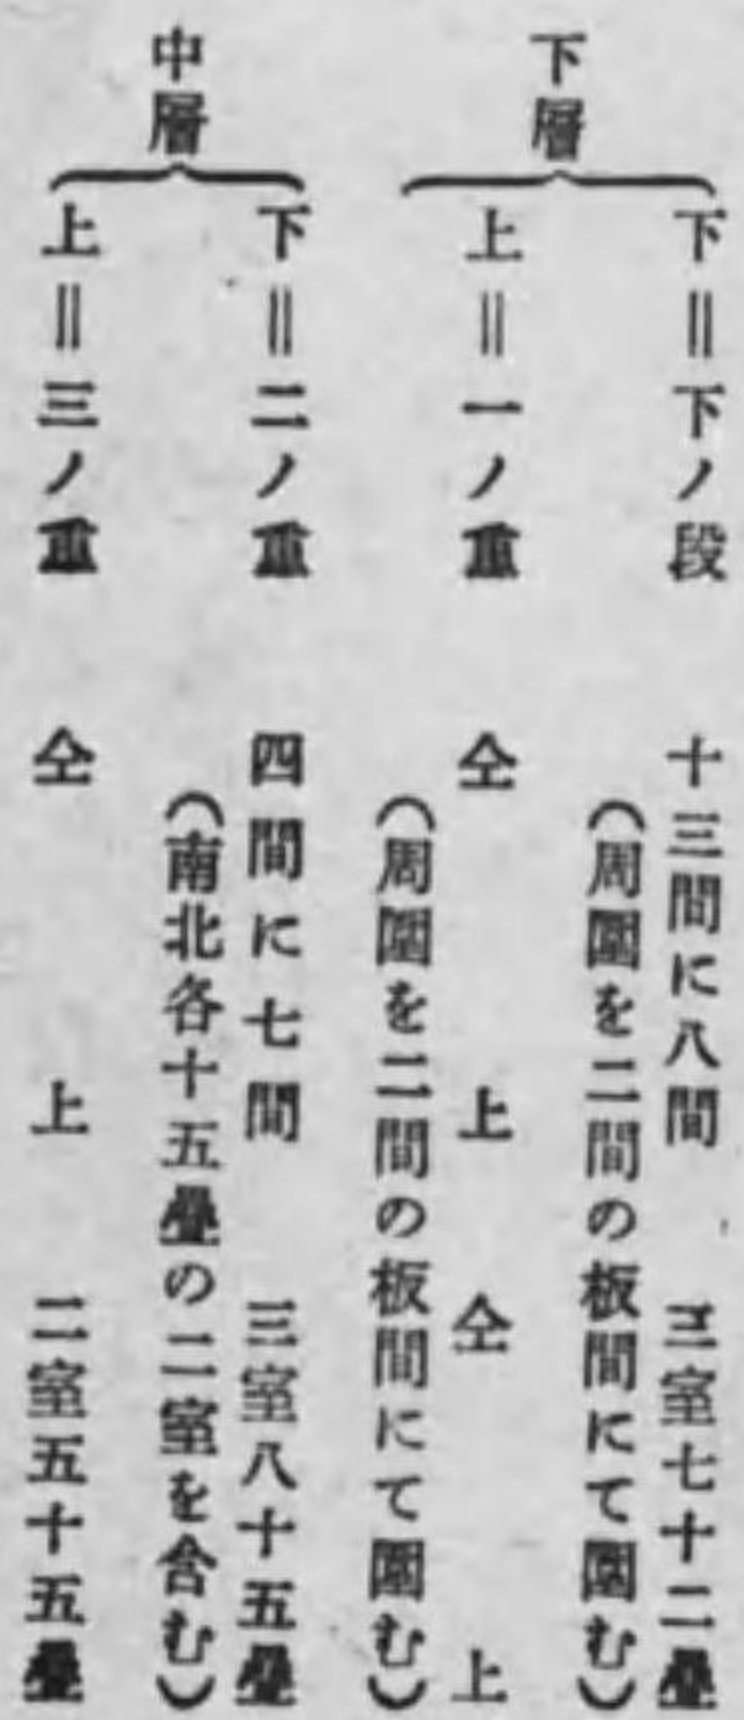 下層
下＝下ノ段　十三間に八間　三室七十二疊
（周圍を二間の板間にて圍む）
上＝一ノ重　仝上　仝上
（周圍を二間の板間にて圍む）
中層
下＝二ノ重　四間に七間　三室八十五疊
（南北各十五疊の二室を含む）
上＝三ノ重　仝上　二室五十五疊